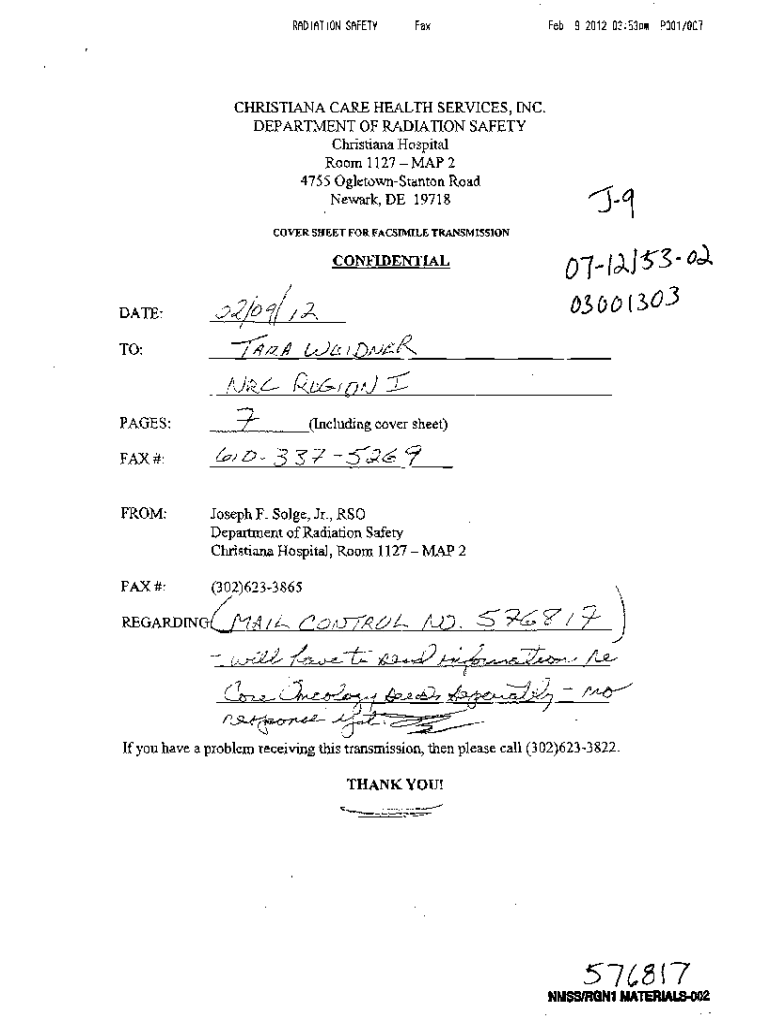 RADIATION SAFETY Fax Feb 9 2012 03:53pm P001/007
CHRISTIANA CARE HEALTH SERVICES, INC.
DEPARTMENT OF RADIATION SAFETY
Christiana Hospital
Room 1127 – MAP 2
4755 Ogletown-Stanton Road
Newark, DE 19718
J-9
COVER SHEET FOR FACSIMILE TRANSMISSION
CONFIDENTIAL
07-12153-02
03001303
DATE: 02/09/12
TO: TARA WEIDNER
NRC REGION I
PAGES: 7 (Including cover sheet)
FAX #: 610-337-5269
FROM: Joseph F. Solge, Jr., RSO
Department of Radiation Safety
Christiana Hospital, Room 1127 – MAP 2
FAX #: (302)623-3865
REGARDING (MAIL CONTROL NO. 576817)
- will have to send information re
Core Oncology seeds separately - no
response yet.
If you have a problem receiving this transmission, then please call (302)623-3822.
THANK YOU!
576817
NMSS/RGN1 MATERIALS-002